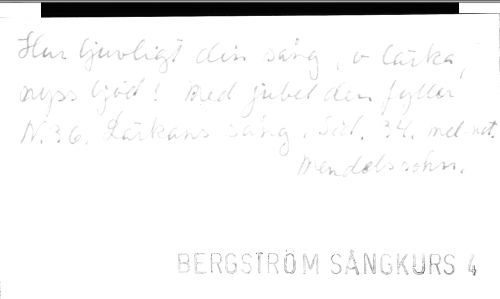 Hur ljuvligt din sång, o lärka,
nyss ljöd! Med jubel den fyller
N. 36. Lärkans sång. Sid. 34. mel-not.
Mendelssohn.
BERGSTRÖM SÅNGKURS 4